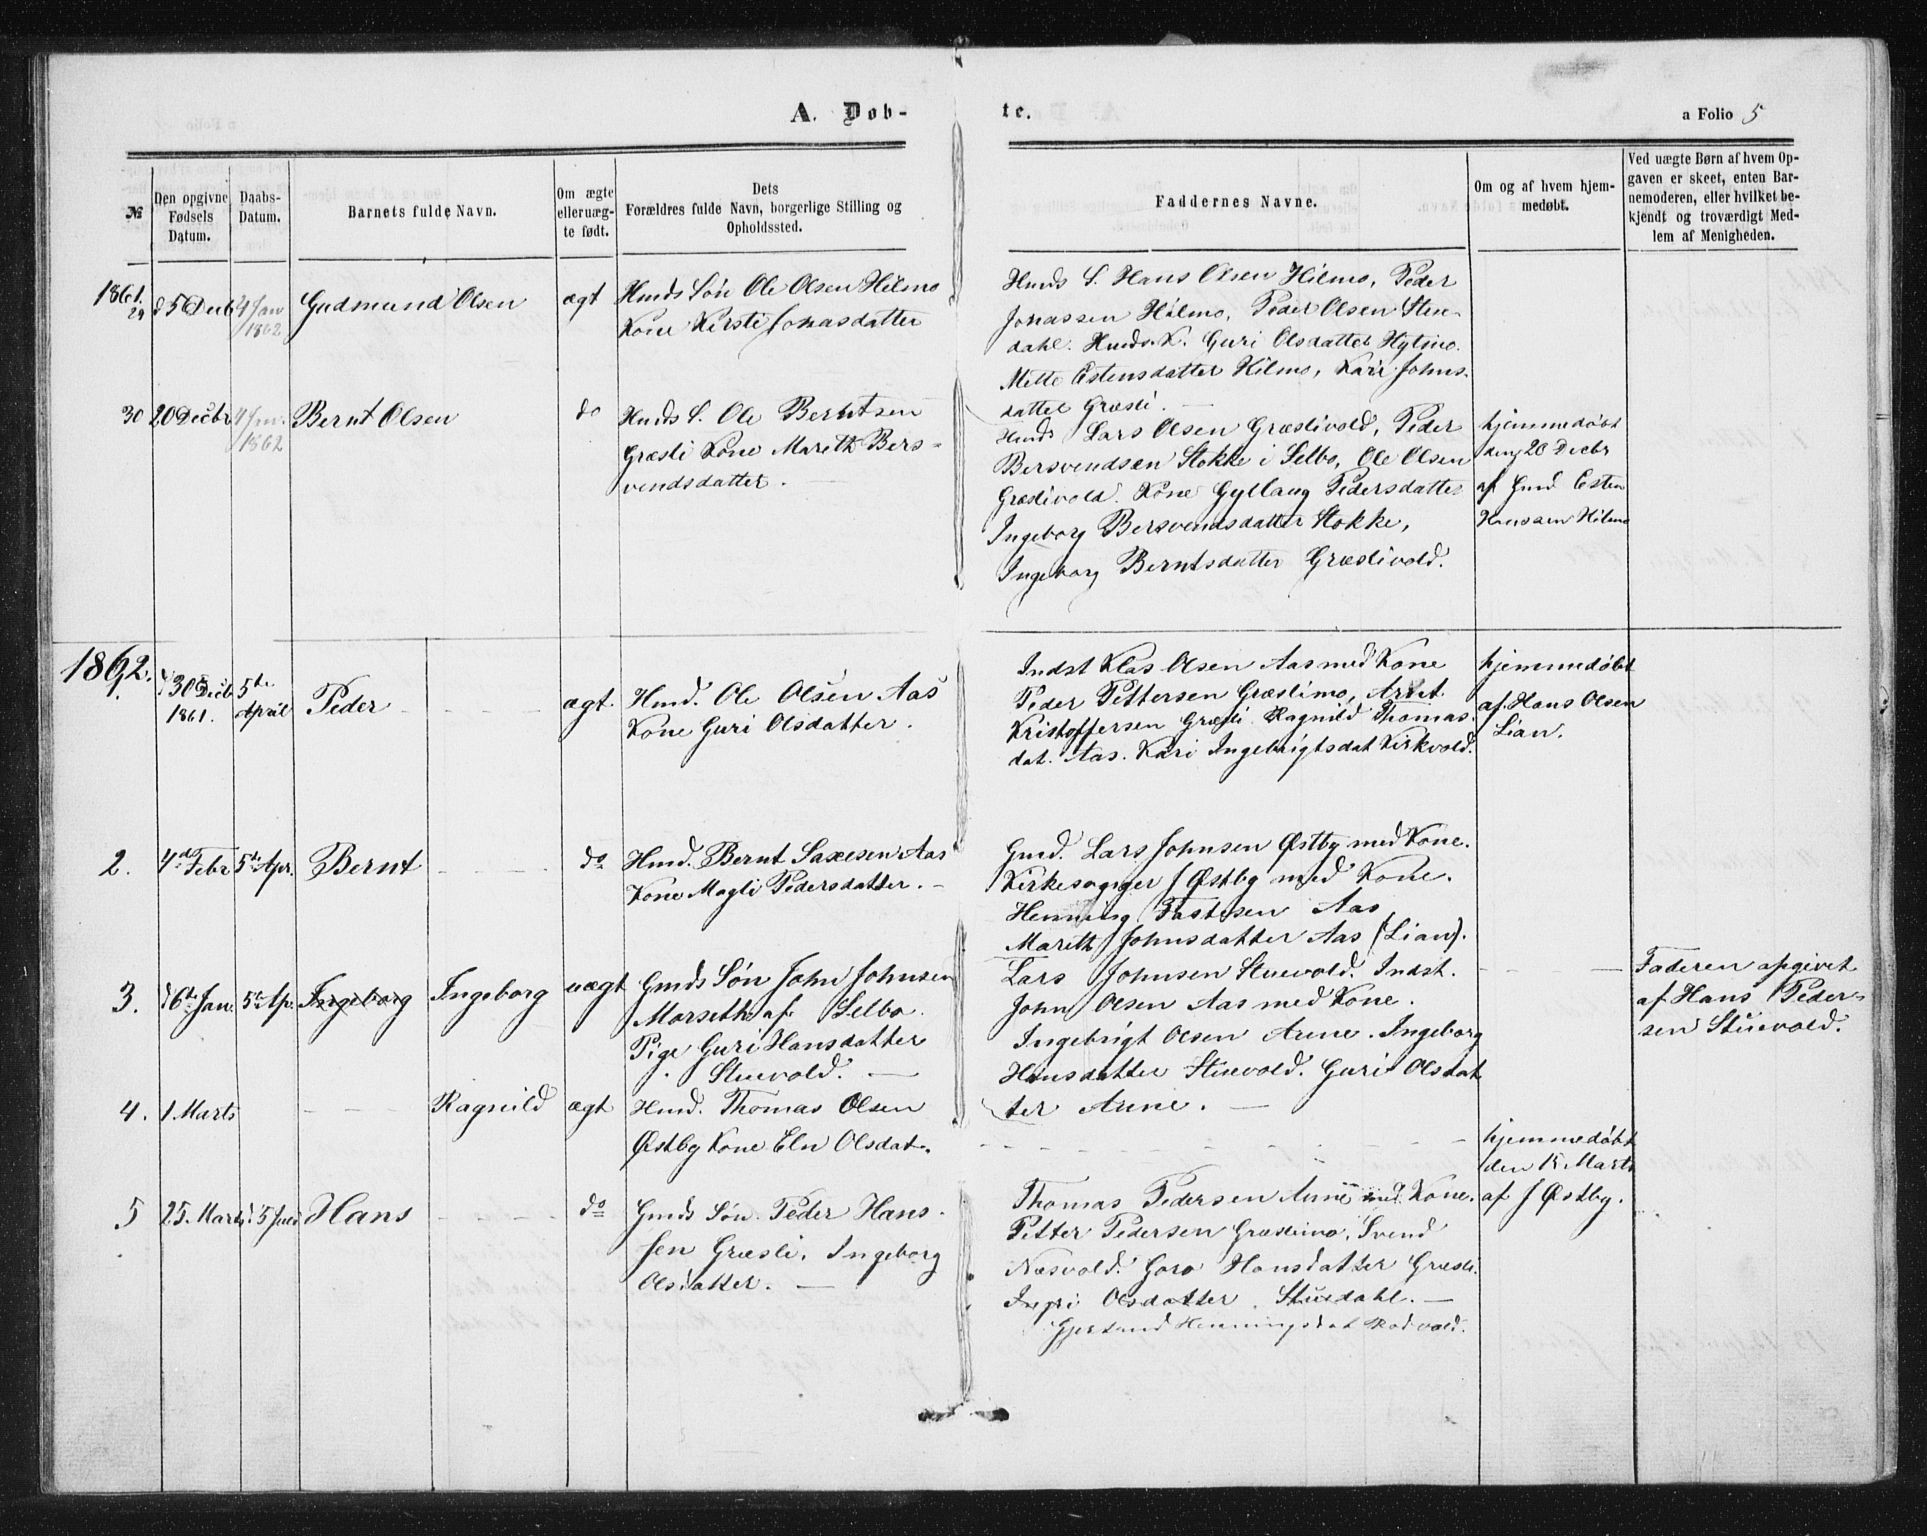 A. Døb-
te.
a Folio 5
№
Den opgivne
Fødsels
Datum.
Daabs-
Datum.
Barnets fulde Navn.
Om ægte
eller uæg-
te født.
Dets
Forældres fulde Navn, borgerlige Stilling og
Opholdssted.
Faddernes Navne.
Om og af hvem hjem-
medøbt.
Ved uægte Børn af hvem Op-
gaven er skeet, enten Bar-
nemoderen, eller hvilket be-
kjendt og troværdigt Med-
lem af Menigheden.
1861.
29
d 5 Decb
4 Jan
1862
Gudmund Olsen
ægt
Hmds Søn Ole Olsen Hilmo
Kone Kirsti Jonasdatter
Hmds S. Hans Olsen Hilmo, Peder
Jonassen Hilmo, Peder Olsen Stue-
dahl. Hmds. K. Guri Olsdatter Hylmo.
Mette Estensdatter Hilmo, Kari Johns-
datter Græsli. —
30
20 Decbr
4 Jan.
1862
Bernt Olsen
do
Hmds S. Ole Berntsen
Græsli Kone Marith Bers-
vendsdatter. —
Hmds Lars Olsen Græslivold, Peder
Bersvendsen Stokke i Selbo, Ole Olsen
Græslivold. Kone Gyllaug Pedersdatter
Ingeborg Bersvendsdatter Stokke,
Ingeborg Berntsdatter Græslivold.
hjemmedøbt
den 20 Decbr
af Gmd Esten
Hanssen Hilmo
1862.
1.
d 30 Decb.
1861.
5te
April
Peder - - -
ægt.
Hmd. Ole Olsen Aas
Kone Guri Olsdatter.
Indst Klas Olsen Aas med Kone
Peder Pettersen Græslimo, Arnt
Kristoffersen Græsli Ragnild Thomas-
dat. Aas. Kari Ingebrigtsdat Kirkvold.
hjemmedøbt
af Hans Olsen
Lian.
2.
4de Febr
5te Apr.
Bernt - - -
do
Hmd. Bernt Saxesen Aas
Kone Magli Pedersdatter. —
Gmd. Lars Johnsen Østby med Kone.
Kirkesanger J Østby med Kone.
Henning Fastesen Aas
Marith Johnsdatter Aas (Lian).
3.
d 6te Jan.
5te Ap.
Ingeborg
Ingeborg
uægt
Gmds Søn John Johnsen
Marseth af Selbo.
Pige Guri Hansdatter
Stuevold. —
Lars Johnsen Stuevold. Indst.
John Olsen Aas med Kone.
Ingebrigt Olsen Aune. Ingeborg
Hansdatter Stuevold. Guri Olsdat
ter Aune. —
- - —
Faderen opgivet
af Hans Peder-
sen Stuevold.
4.
1 Marts
- - -
Ragnild
ægt
Hmd. Thomas Olsen
Østby Kone Eln Olsdat.
- - - - - -
hjemmedøbt
den 15 Marts
af J Østby.
5
25. Marts
d. 5 Juli
Hans - - -
do
Gmds Søn Peder Hans-
sen Græsli. Ingeborg
Olsdatter. —
Thomas Pedersen Aune med Kone.
Petter Pedersen Græslimo, Svend
Næsvold. Goro Hansdatter Græsli.
Ingri Olsdatter Stuedahl. —
Gjertrud Henningsdat